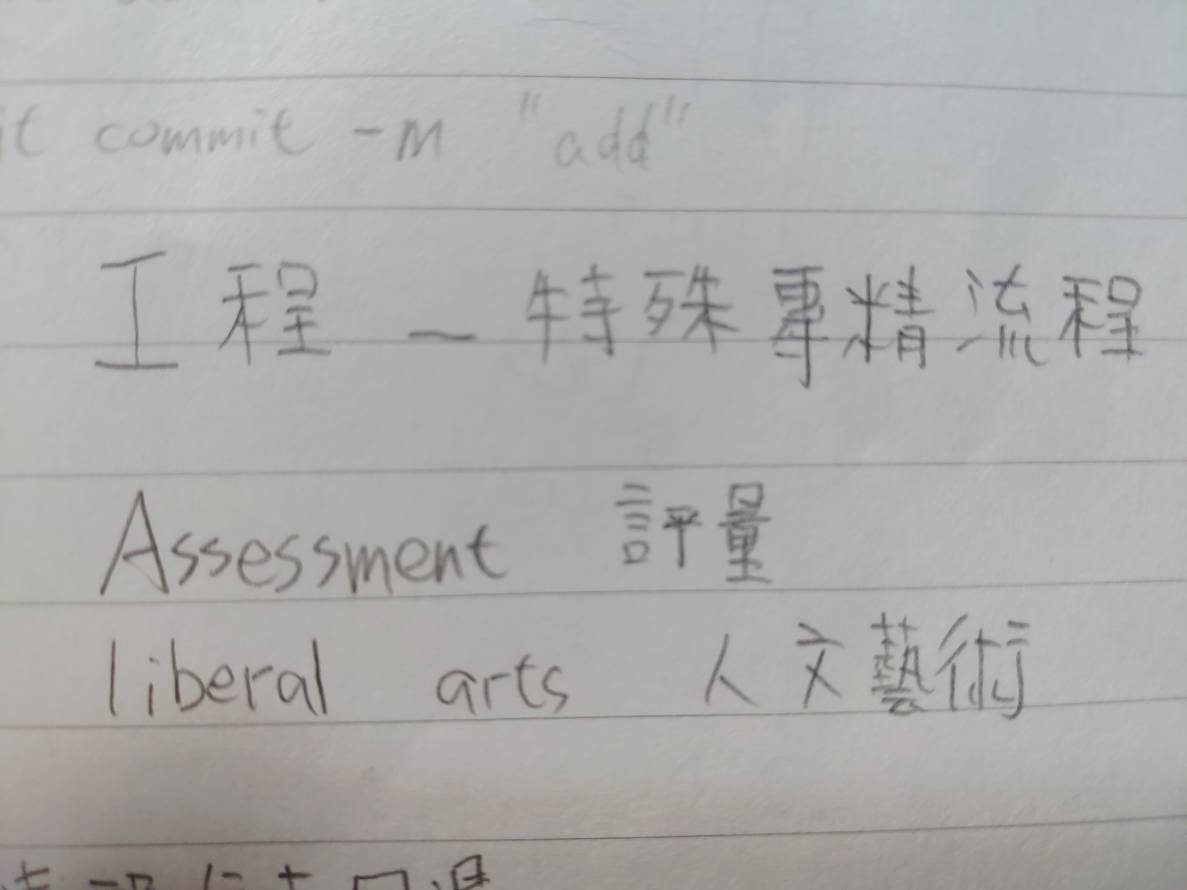 it commit -m "add"
工程 — 特殊專精流程
Assessment 評量
liberal arts 人文藝術